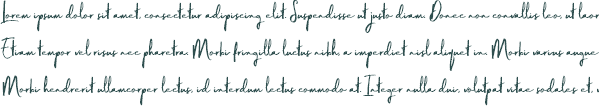 Lorem ipsum dolor sit amet, consectetur adipiscing elit. Suspendisse ut justo diam. Donec non convallis leo, ut laor
Etiam tempor vel risus nec pharetra. Morbi fringilla luctus nibh, a imperdiet nisl aliquet in. Morbi varius augue
Morbi hendrerit ullamcorper lectus, id interdum lectus commodo at. Integer nulla dui, volutpat vitae sodales et, v